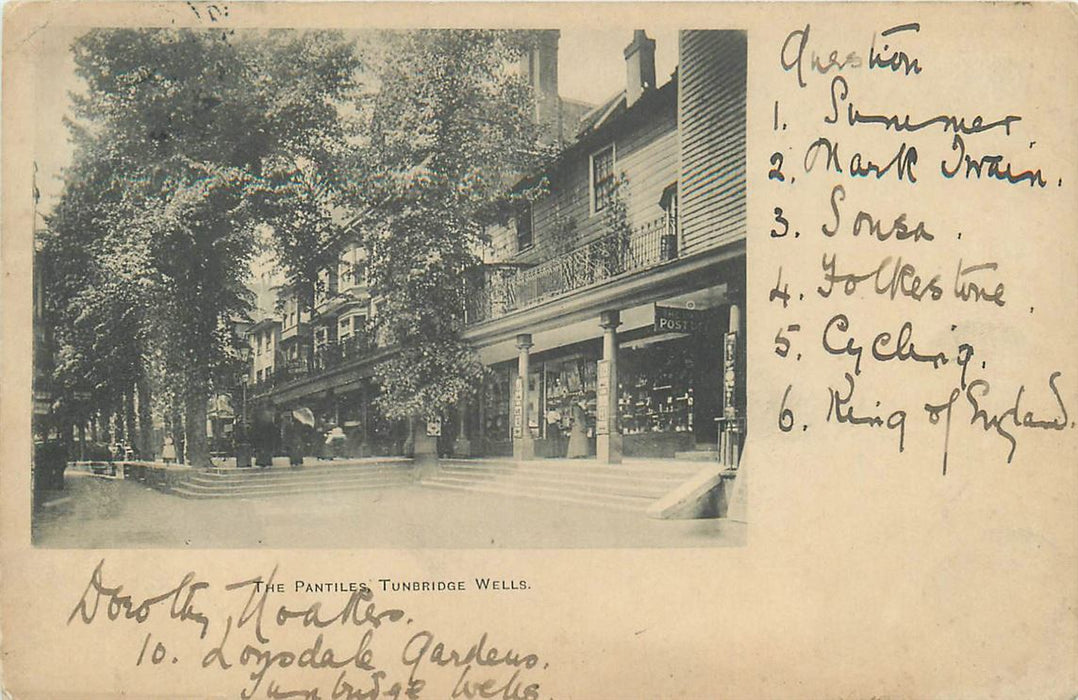 Question
1. Summer.
2. Mark Twain.
3. Sousa.
4. Folkestone.
5. Cycling.
6. King of England.
POST
THE PANTILES, TUNBRIDGE WELLS.
Dorothy Noakes.
10. Lonsdale Gardens.
Tunbridge Wells.